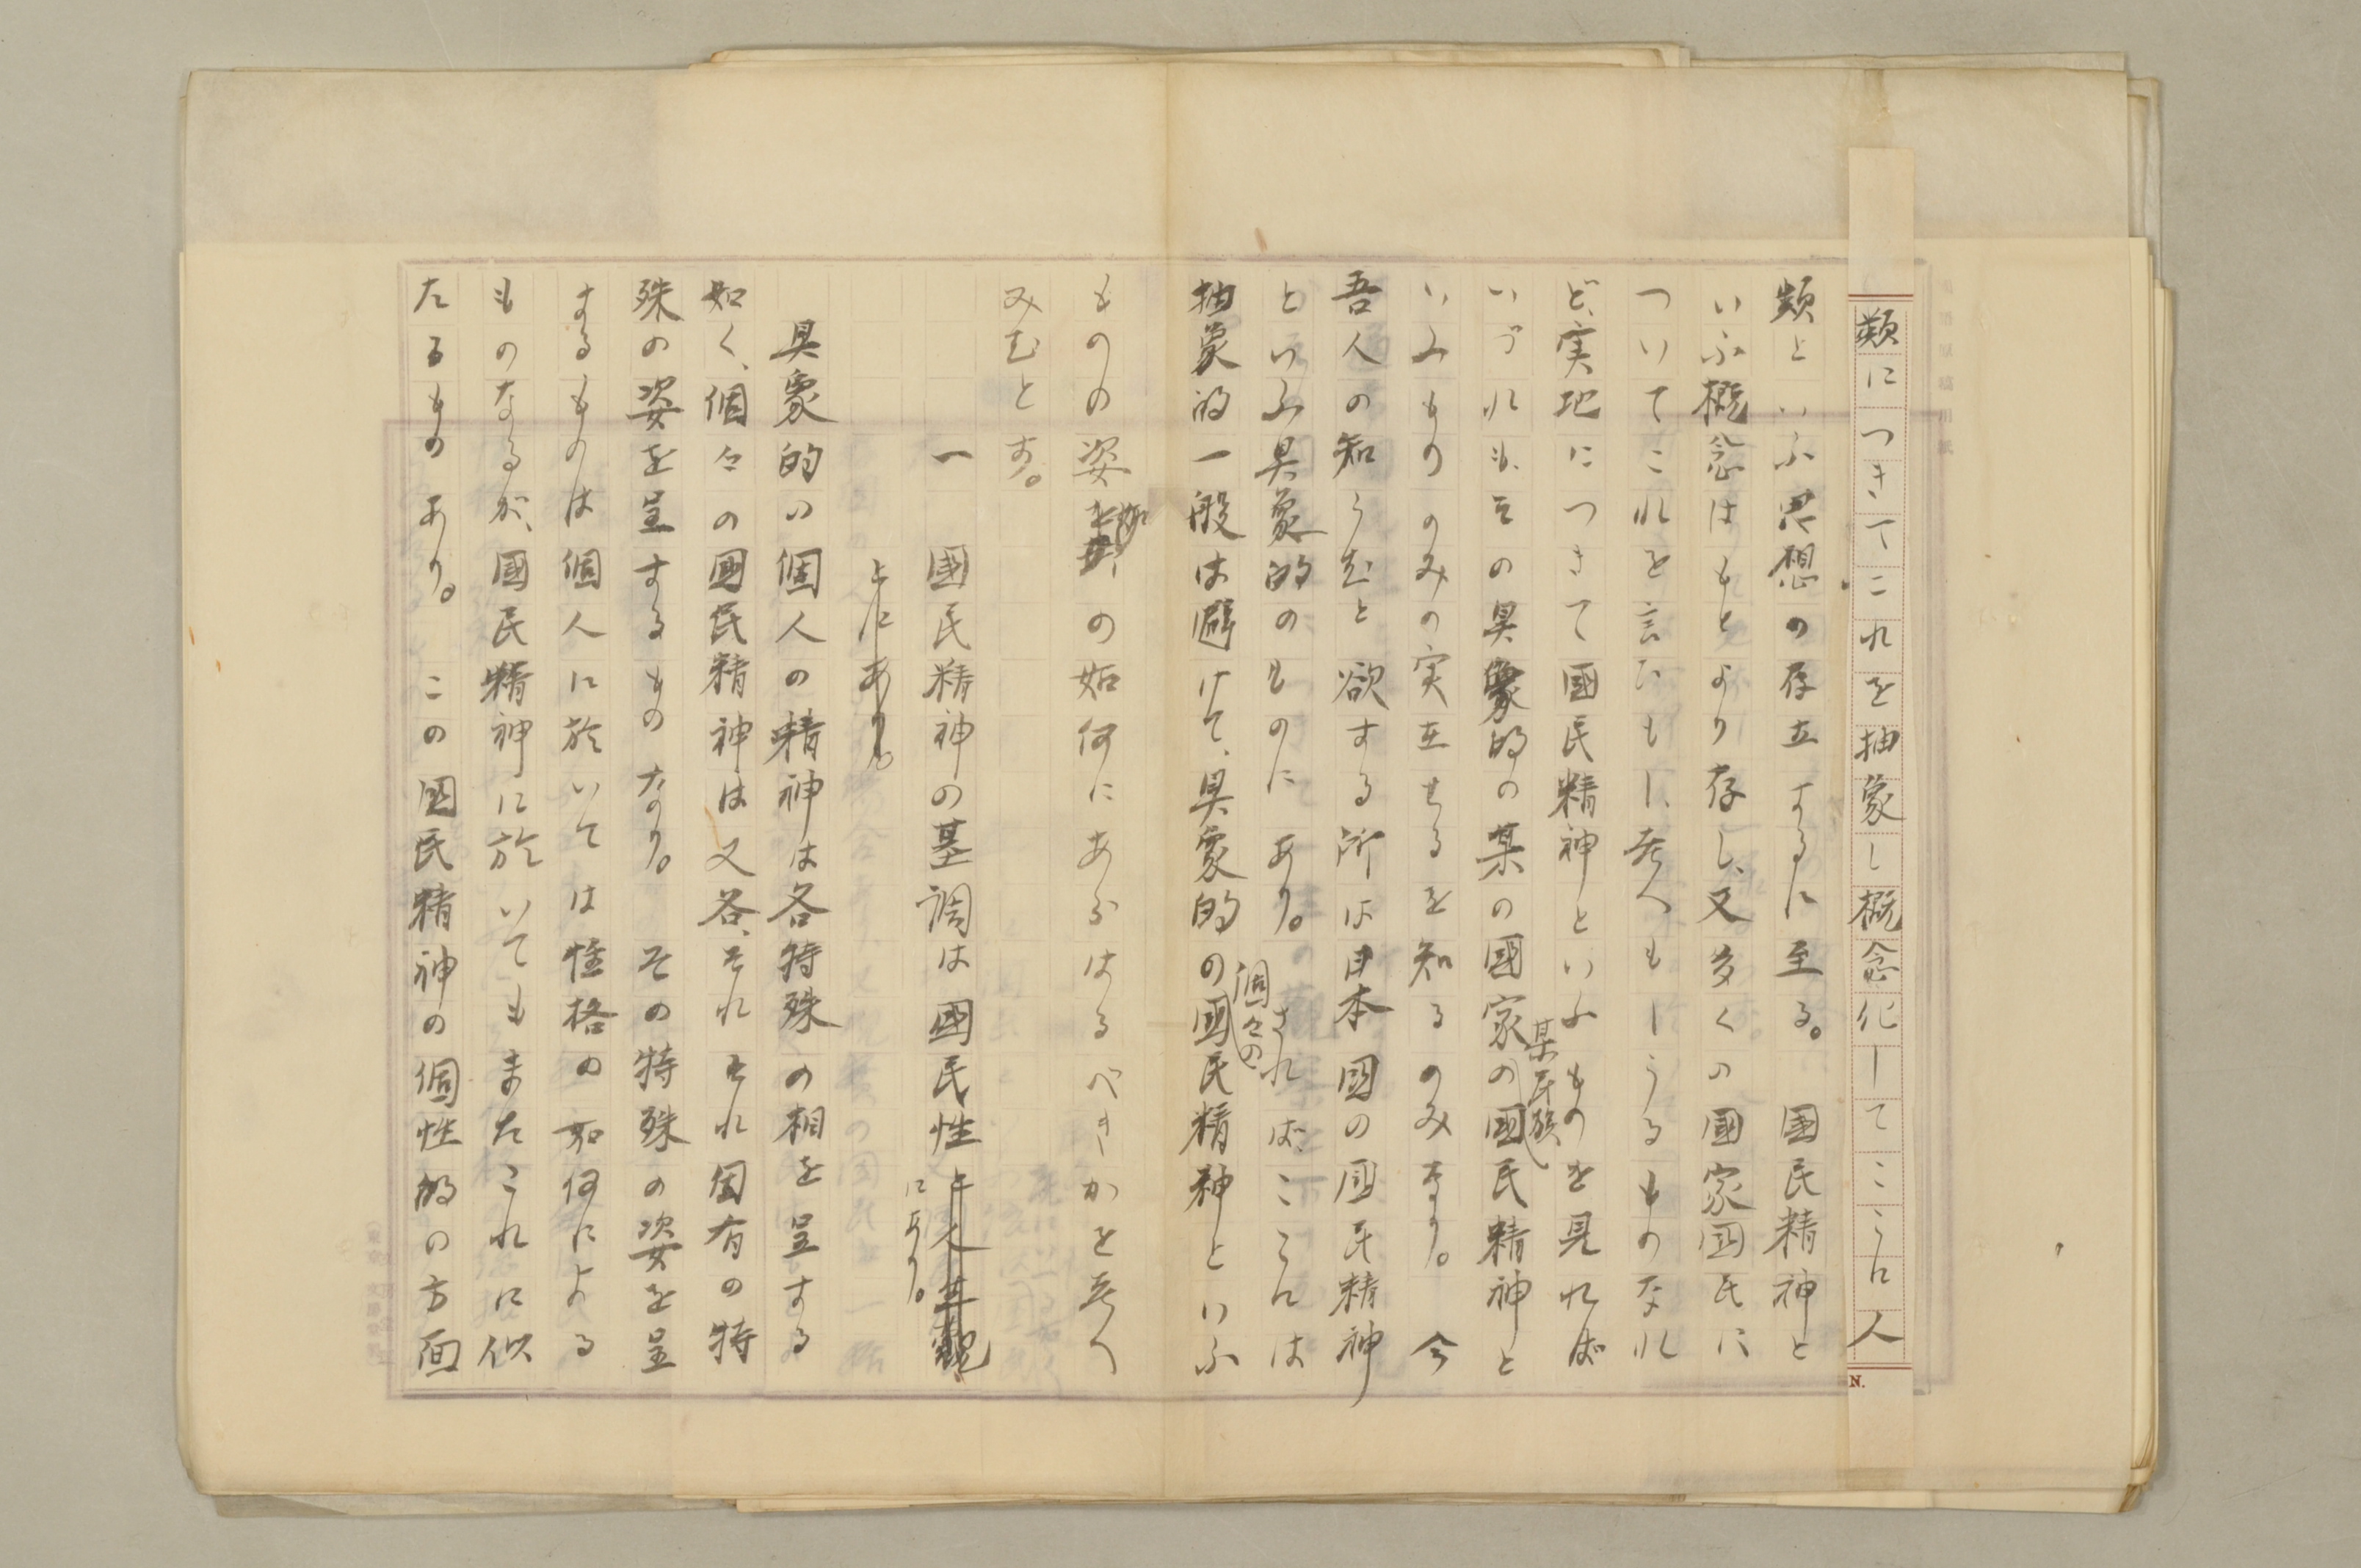 類につきてこれを抽象し概念化してこゝに人
類といふ思想の存立するに至る。国民精神と
いふ概念はもとより存し、又多くの國家国民に
ついてこれを言ひもし、考へもしうるものなれ
ど、実地につきて國民精神といふものを見れば
いづれも、その具象的の某の國家の國民精神と
某民族
いふもののみの実在せるを知るのみなり。今
吾人の知らむと欲する所は日本國の国民精神
といふ具象的のものにあり。さればこゝには
抽象的一般は避けて、具象的の國民精神といふ
個々の
ものの姿の如何にあらはるべきかを考へ
みむとす。
一 國民精神の基調は國民性
にあり。
とにあり。
具象的の個人の精神は各特殊の相を呈する
如く、個々の國民精神は又各、それそれ固有の特
殊の姿を呈するものなり。その特殊の姿を呈
するものは個人に於いては性格の如何による
ものなるが、國民精神に於いてもまたこれに似
たるものあり。この國民精神の個性的の方面
N.